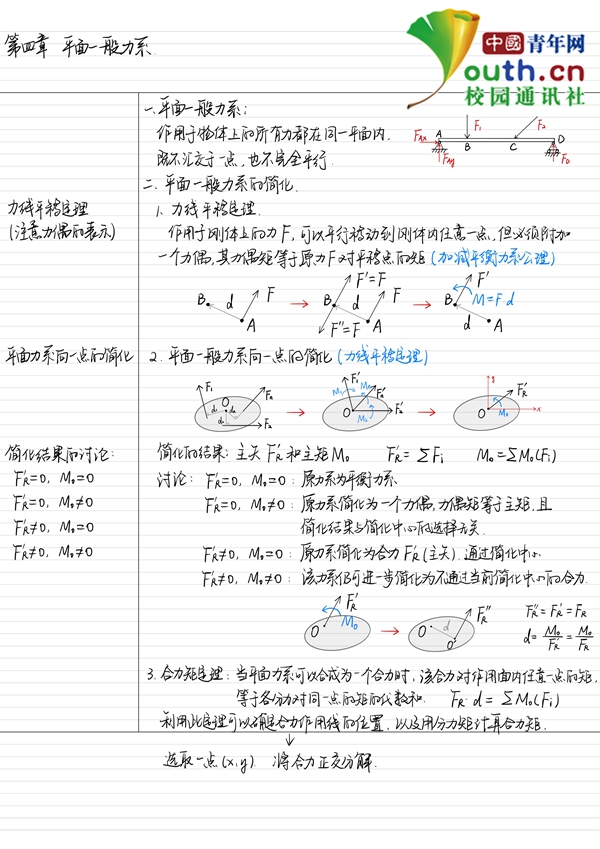 中國青年网
Youth.cn
校园通讯社
第四章 平面一般力系.
一.平面一般力系:
作用于物体上的所有力都在同一平面内,
既不汇交于一点,也不完全平行.
F₁
F₂
A
B
C
D
F_Ax
F_Ay
F_D
二.平面一般力系的简化.
力线平移定理
(注意力偶的表示)
1、力线平移定理.
作用于刚体上的力F,可以平行移动到刚体内任意一点,但必须附加
一个力偶,其力偶矩等于原力F对平移点的矩(加减平衡力系公理)
B d F A
B d F'=F F F''=F A
B F' M=F·d d A
平面力系向一点的简化
2.平面一般力系向一点的简化(力线平移定理)
简化结果的讨论:
简化的结果:主矢F'R和主矩M₀ F'R=ΣFi M₀=ΣM₀(Fi)
F'R=0, M₀=0
F'R=0, M₀≠0
F'R≠0, M₀=0
F'R≠0, M₀≠0
讨论: F'R=0, M₀=0:原力系为平衡力系
F'R=0, M₀≠0:原力系简化为一个力偶,力偶矩等于主矩,且
简化结果与简化中心的选择无关.
F'R≠0, M₀=0:原力系简化为合力F'R(主矢).通过简化中心
F'R≠0, M₀≠0:该力系仍可进一步简化为不通过当前简化中心的合力.
O F'R M₀
O d O' F''R
F''R=F'R=FR
d=M₀/F'R=M₀/FR
3.合力矩定理:当平面力系可以合成为一个合力时,该合力对作用面内任意一点的矩,
等于各分力对同一点的矩的代数和. FR·d=ΣM₀(Fi)
利用此定理可以确定合力作用线的位置,以及用分力矩计算合力矩.
↓
选取一点(x,y) 将合力正交分解.